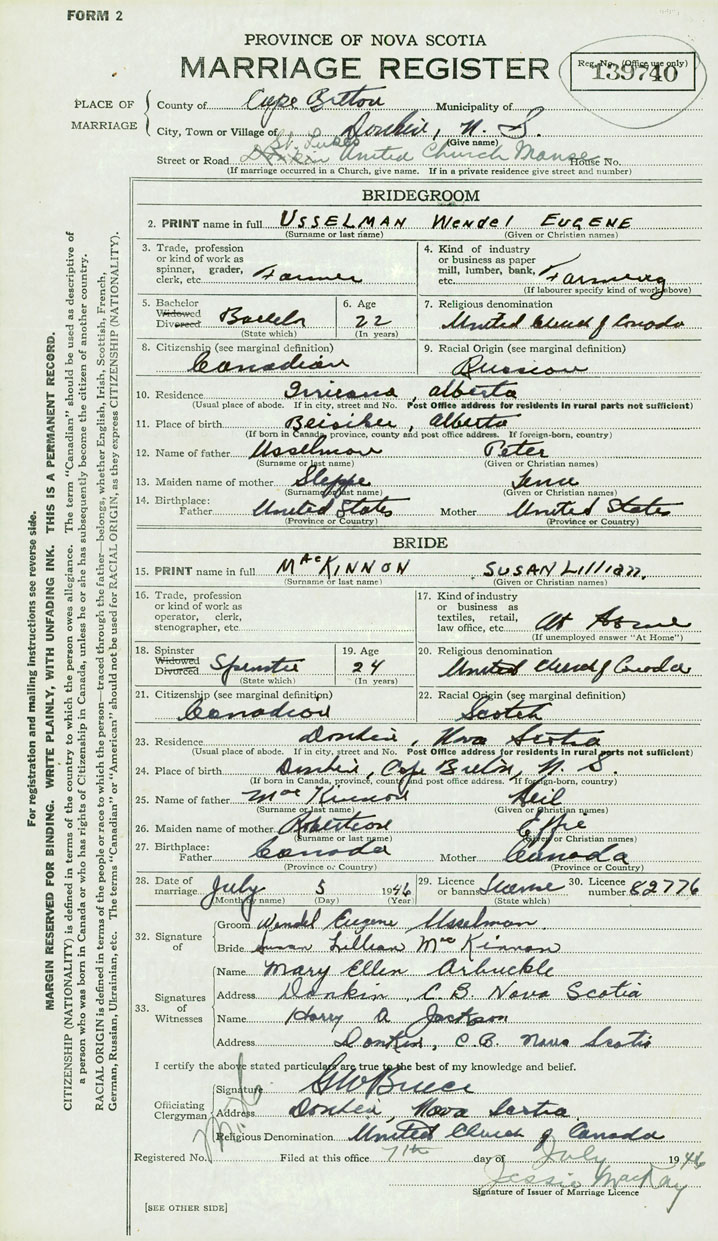 FORM 2
PROVINCE OF NOVA SCOTIA
MARRIAGE REGISTER
Reg. No. (Office use only)
139740
PLACE OF MARRIAGE
County of Cape Breton Municipality of
City, Town or Village of Donkin, N. S.
(Give name)
St. Lukes
Street or Road Donkin United Church Manse House No.
(If marriage occurred in a Church, give name. If in a private residence give street and number)
BRIDEGROOM
2. PRINT name in full USSELMAN Wendel EUGENE
(Surname or last name) (Given or Christian names)
3. Trade, profession or kind of work as spinner, grader, clerk, etc. Farmer
4. Kind of industry or business as paper mill, lumber, bank, etc. Farming
(If labourer specify kind of work above)
5. Bachelor Widowed Divorced Bachelor
(State which)
6. Age 22
(In years)
7. Religious denomination
United Church of Canada
8. Citizenship (see marginal definition)
Canadian
9. Racial Origin (see marginal definition)
Russian
10. Residence Irricana, Alberta
(Usual place of abode. If in city, street and No. Post Office address for residents in rural parts not sufficient)
11. Place of birth Beiseker, Alberta
(If born in Canada, province, county and post office address. If foreign-born, country)
12. Name of father Usselman Peter
(Surname or last name) (Given or Christian names)
13. Maiden name of mother Steppe
(Surname or last name) (Given or Christian names)
14. Birthplace: Father United States Mother United States
(Province or Country) (Province or Country)
BRIDE
15. PRINT name in full MacKINNON SUSAN Lillian.
(Surname or last name) (Given or Christian names)
16. Trade, profession or kind of work as operator, clerk, stenographer, etc.
17. Kind of industry or business as textiles, retail, law office, etc. At Home
(If unemployed answer "At Home")
18. Spinster Widowed Divorced Spinster
(State which)
19. Age 24
(In years)
20. Religious denomination
United Church of Canada
21. Citizenship (see marginal definition)
Canadian
22. Racial Origin (see marginal definition)
Scotch
23. Residence Donkin, Nova Scotia
(Usual place of abode. If in city, street and No. Post Office address for residents in rural parts not sufficient)
24. Place of birth Donkin, Cape Breton, N. S.
(If born in Canada, province, county and post office address. If foreign-born, country)
25. Name of father MacKinnon Neil
(Surname or last name) (Given or Christian names)
26. Maiden name of mother Robertson Effie
(Surname or last name) (Given or Christian names)
27. Birthplace: Father Canada Mother Canada
(Province or Country) (Province or Country)
28. Date of marriage July 5 1946
(Month by name) (Day) (Year)
29. Licence or banns License
(State which)
30. Licence number 82776
32. Signature of
Groom Wendel Eugene Usselman.
Bride Susan Lillian MacKinnon
33. Signatures of Witnesses
Name Mary Ellen Arbuckle
Address Donkin C.B. Nova Scotia
Name Harry A Jackson
Address Donkin, C.B. Nova Scotia
I certify the above stated particulars are true to the best of my knowledge and belief.
Officiating Clergyman
Signature G W Bruce
Address Donkin, Nova Scotia.
Religious Denomination United Church of Canada
Registered No. Filed at this office 7th day of July 1946
Jessie MacKay
Signature of Issuer of Marriage Licence
[SEE OTHER SIDE]
For registration and mailing instructions see reverse side.
MARGIN RESERVED FOR BINDING. WRITE PLAINLY, WITH UNFADING INK. THIS IS A PERMANENT RECORD.
CITIZENSHIP (NATIONALITY) is defined in terms of the country to which the person owes allegiance. The term "Canadian" should be used as descriptive of
a person who was born in Canada or who has rights of Citizenship in Canada, unless he or she has subsequently become the citizen of another country.
RACIAL ORIGIN is defined in terms of the people or race to which the person—traced through the father—belongs, whether English, Irish, Scottish, French,
German, Russian, Ukrainian, etc. The terms "Canadian" or "American" should not be used for RACIAL ORIGIN, as they express CITIZENSHIP (NATIONALITY).